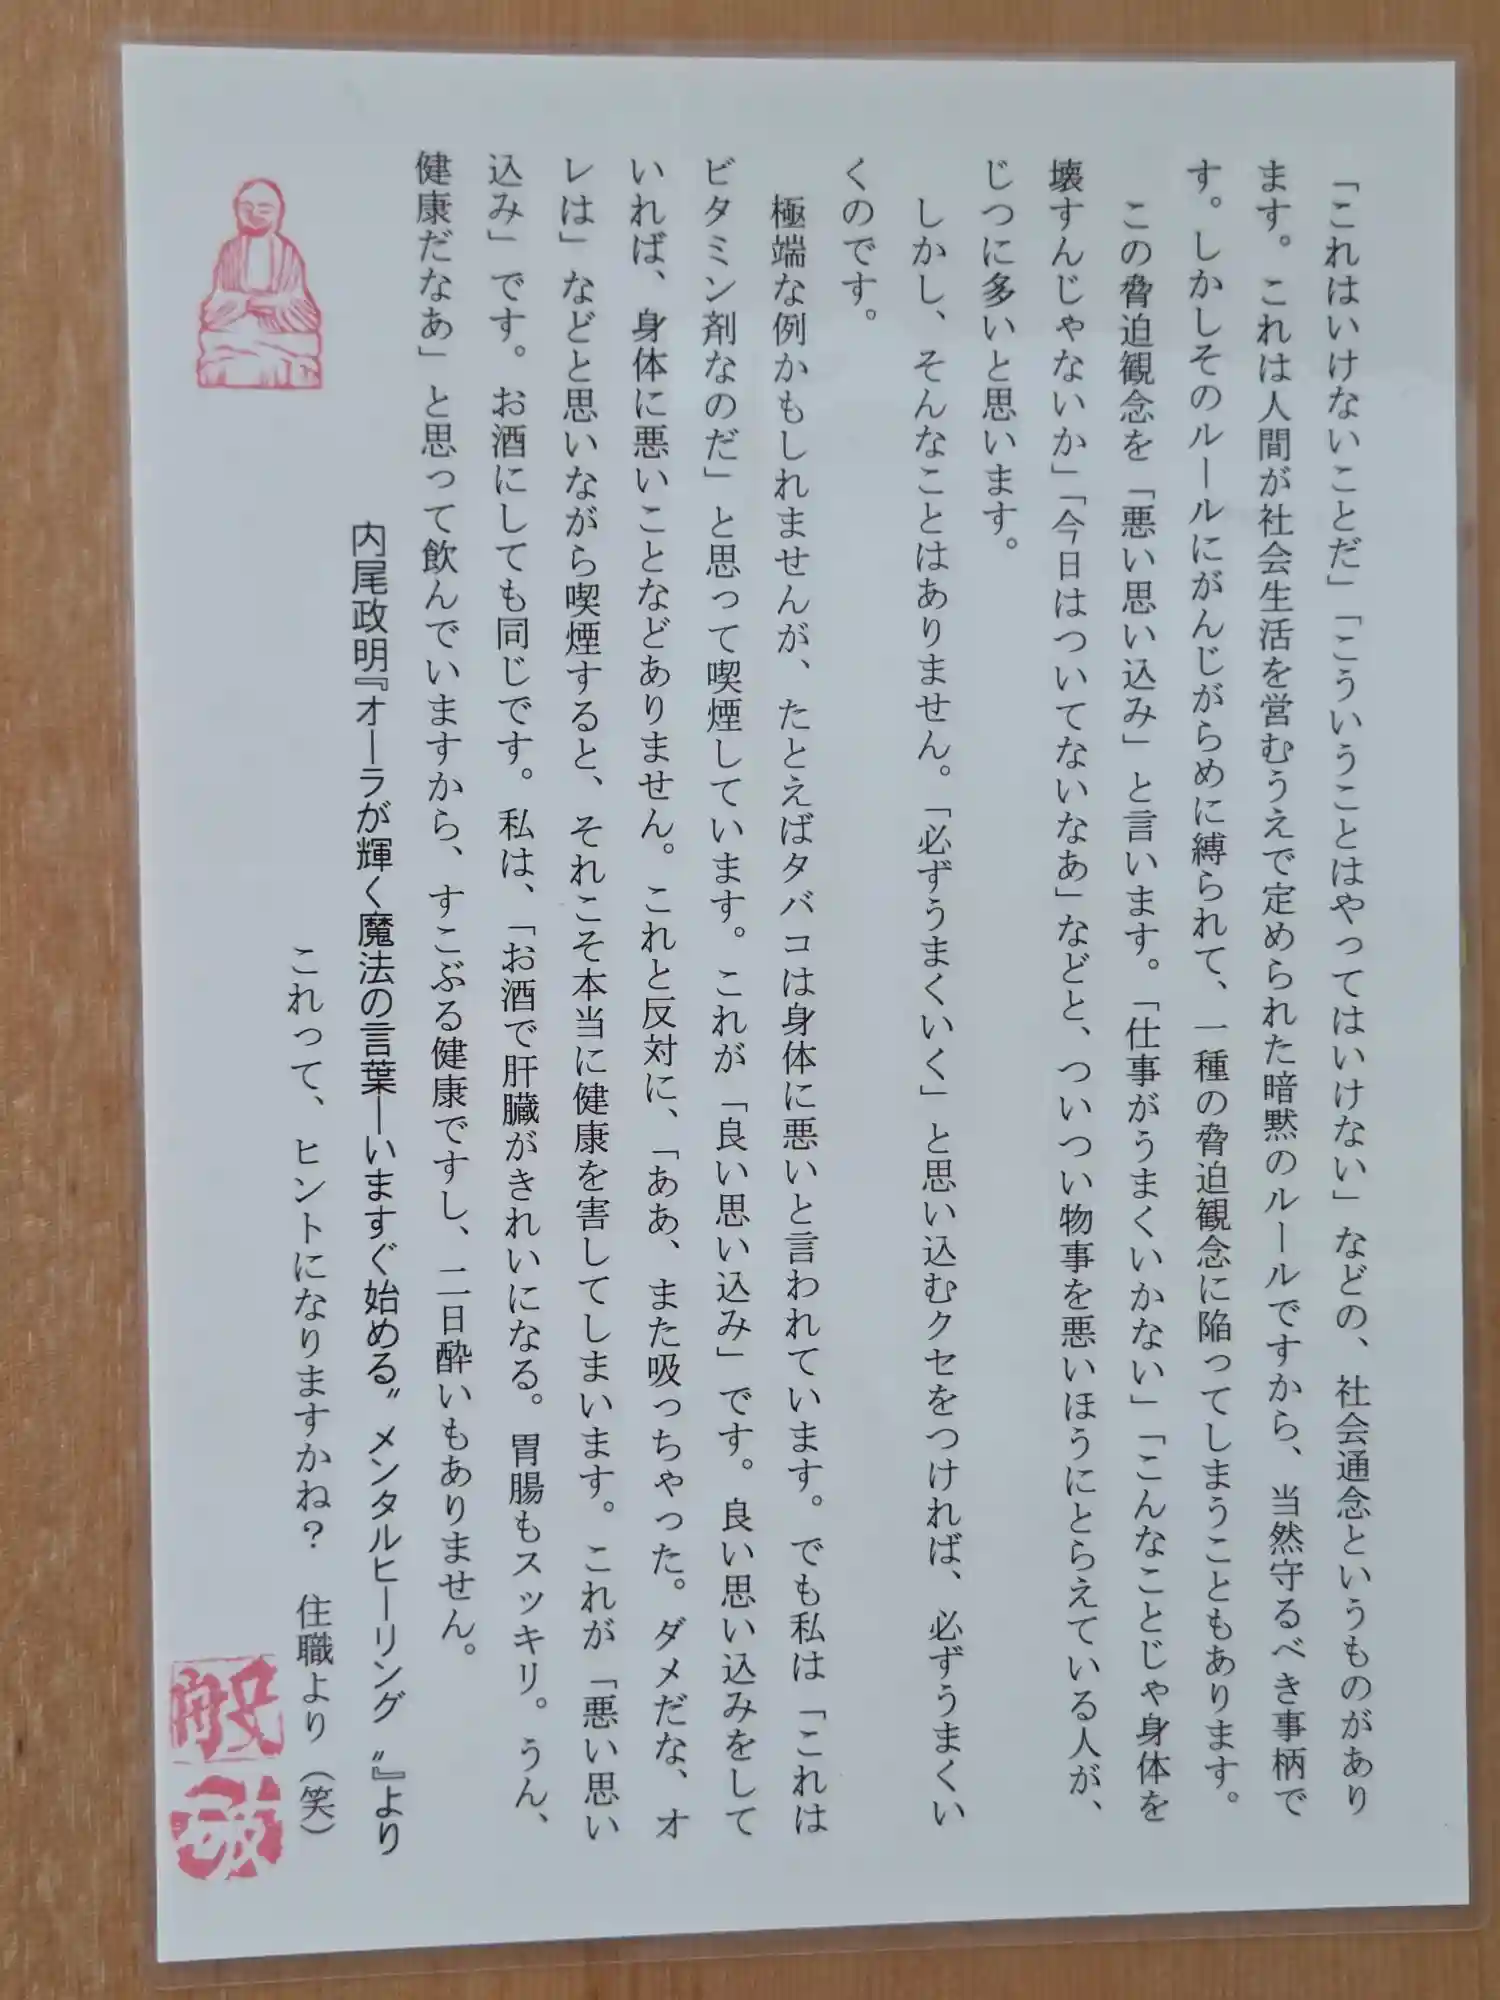 「これはいけないことだ」「こういうことはやってはいけない」などの、社会通念というものがあり
ます。これは人間が社会生活を営むうえで定められた暗黙のルールですから、当然守るべき事柄で
す。しかしそのルールにがんじがらめに縛られて、一種の脅迫観念に陥ってしまうこともあります。
この脅迫観念を「悪い思い込み」と言います。「仕事がうまくいかない」「こんなことじゃ身体を
壊すんじゃないか」「今日はついてないなあ」などと、ついつい物事を悪いほうにとらえている人が、
じつに多いと思います。
しかし、そんなことはありません。「必ずうまくいく」と思い込むクセをつければ、必ずうまくい
くのです。
極端な例かもしれませんが、たとえばタバコは身体に悪いと言われています。でも私は「これは
ビタミン剤なのだ」と思って喫煙しています。これが「良い思い込み」です。良い思い込みをして
いれば、身体に悪いことなどありません。これと反対に、「ああ、また吸っちゃった。ダメだな、オ
レは」などと思いながら喫煙すると、それこそ本当に健康を害してしまいます。これが「悪い思い
込み」です。お酒にしても同じです。私は、「お酒で肝臓がきれいになる。胃腸もスッキリ。うん、
健康だなあ」と思って飲んでいますから、すこぶる健康ですし、二日酔いもありません。
内尾政明『オーラが輝く魔法の言葉ーいますぐ始める〝メンタルヒーリング〟』より
これって、ヒントになりますかね？　住職より（笑）